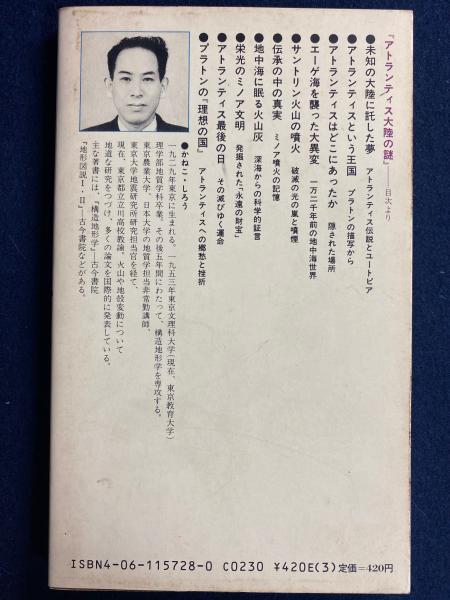 『アトランティス大陸の謎』――目次より
●未知の大陸に託した夢 アトランティス伝説とユートピア
●アトランティスという王国 プラトンの描写から
●アトランティスはどこにあったか 隠された場所
●エーゲ海を襲った大異変 一万二千年前の地中海世界
●サントリン火山の噴火 破滅の光の嵐と噴煙
●伝承の中の真実 ミノア噴火の記憶
●地中海に眠る火山灰 深海からの科学的証言
●栄光のミノア文明 発掘された「永遠の財宝」
●アトランティス最後の日 その滅びゆく運命
●プラトンの『理想の国』 アトランティスへの郷愁と挫折
●かねこ・しろう
一九二九年東京に生まれる。一九五三年東京文理科大学(現在、東京教育大学)
理学部地質学科卒業。その後五年間にわたって、構造地形学を専攻する。
東京農業大学、日本大学の地質学担当非常勤講師、
東京大学地震研究所研究担当官を経て、
現在、東京都立立川高校教諭。火山や地殻変動について
地道な研究をつづけ、多くの論文を国際的に発表している。
主な著書には、『構造地形学』―古今書院
『地形図説Ⅰ・Ⅱ』―古今書院などがある。
ISBN4-06-115728-0 C0230 ¥420E(3) 定価=420円